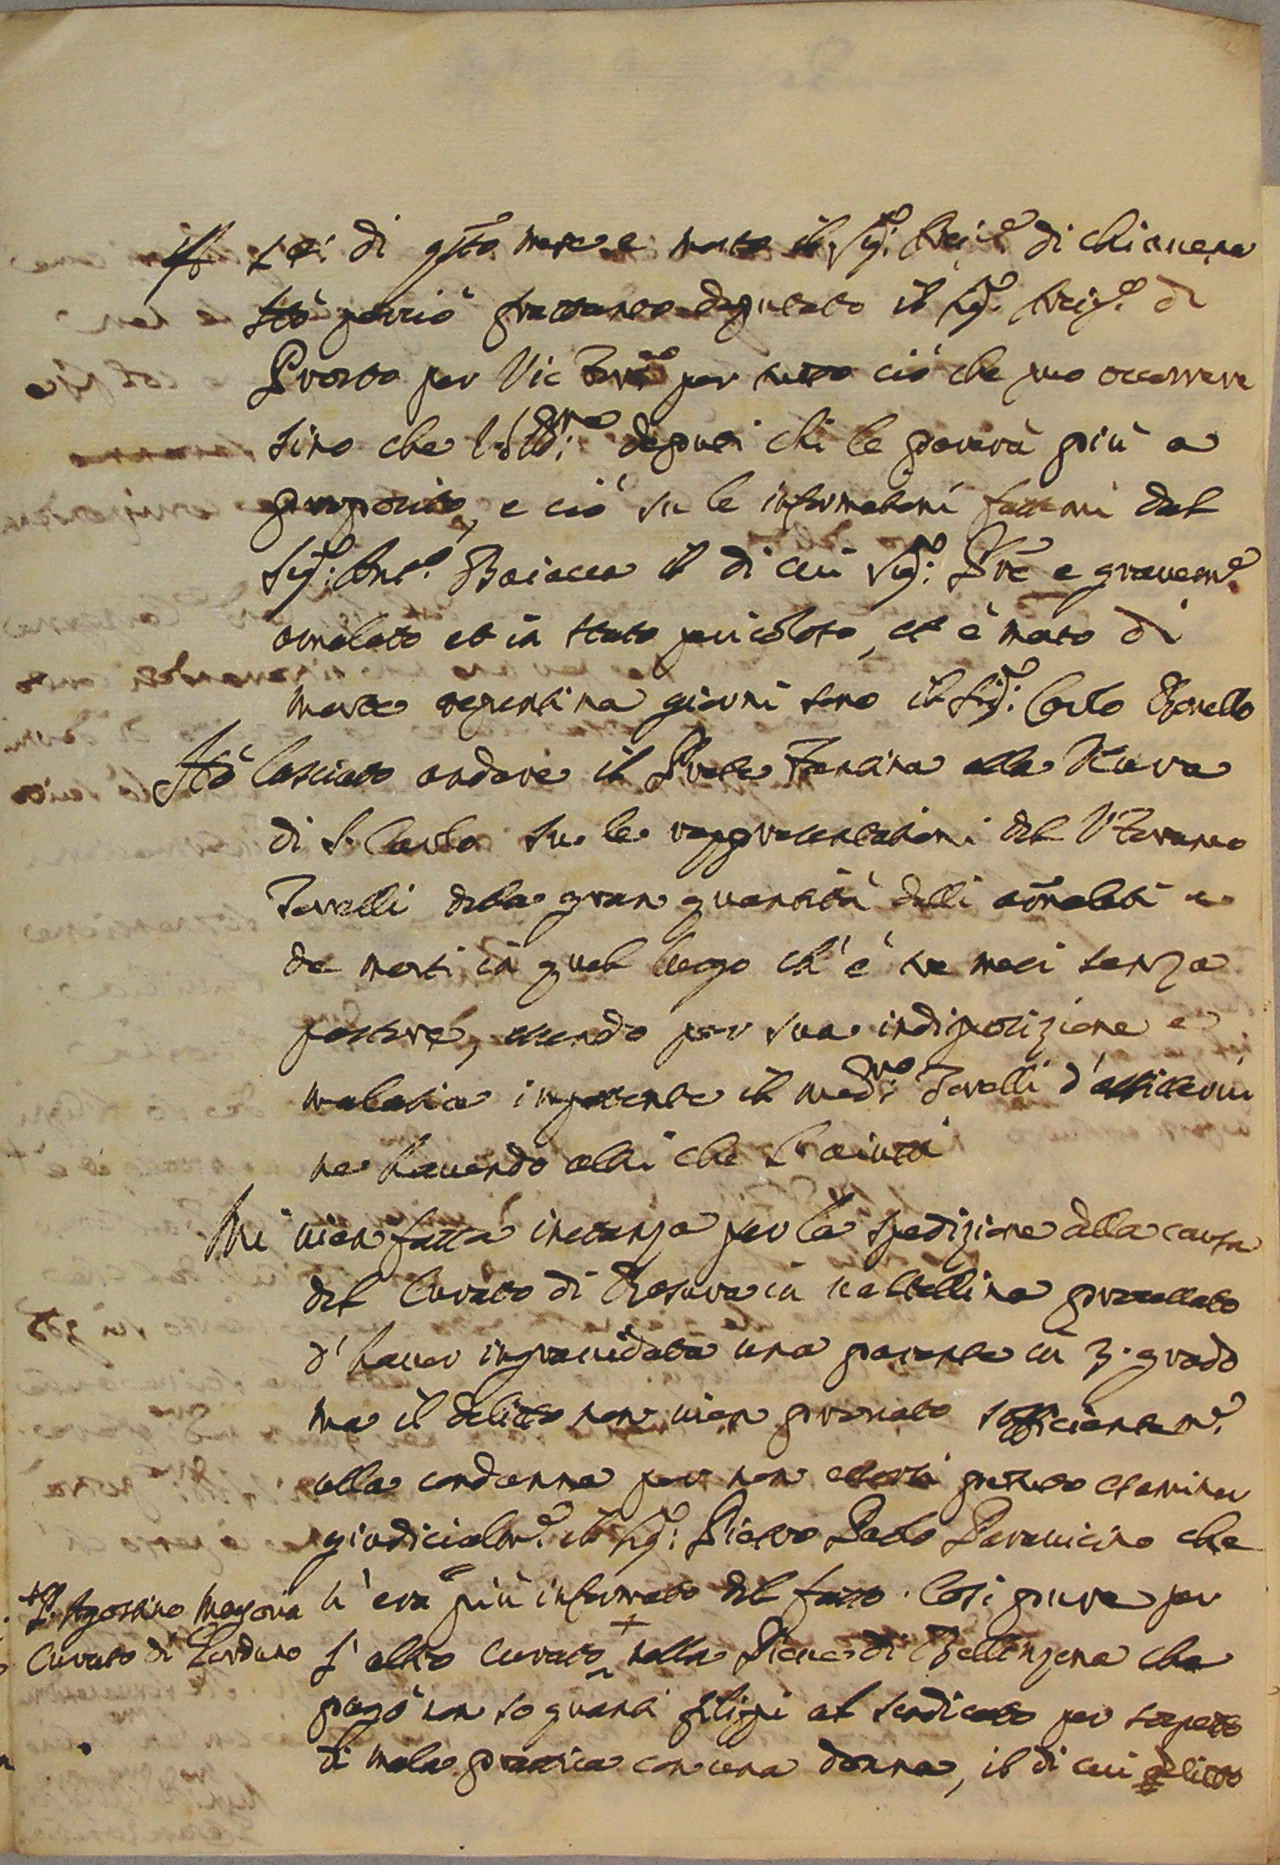 Alli 28 di q.sto mese è morto il Sig.r Arcip.e di Chiavena
Hò perciò frattanto deputato il Sig.r Arcip.e di
Prosto per Vic. For.o per tutto ciò che può occorrere
sino che V.S.Ill.ma deputi chi le parerà più a
proposito, e ciò su le informationi fattemi dal
Sig.r Ant.o Baiacca il di cui Sig.r P͞re è gravem.e
amalato et in stato pericoloso, et è morto di
morte repentina giorni sono il Sig.r Carlo
Hò lasciato andare il Prete Fontana alla Cura
di S. Carlo su le rappresentationi del V. Foraneo
Tovelli della gran quantità delli am͞alati e
de morti in quel luogo ch'è tre mesi senza
pastore, essendo per sua indisposizione e
malatia impotente il med.mo Tovelli d'assistervi
ne havendo altri che l'aiuti
Mi vien fatta instanza per la spedizione della causa
del Curato di in Valtellina processato
d'haver ingravidata una parente in 3.º grado
ma il delitto non vien provato sufficientem.e
alla condanna per non essersi potuto esaminar
giudicialm.e il Sig.r Pietro Paolo Paravicino che
n'era più informato del fatto. Così pure per
l'altro Curato + nella Pieve di Bellinzona che
pagò non so quanti filippi al sindicato per sospetto
di mala pratica con una donna, il di cui delitto
+ P. Agostino Magoria
Curato di Lorduno